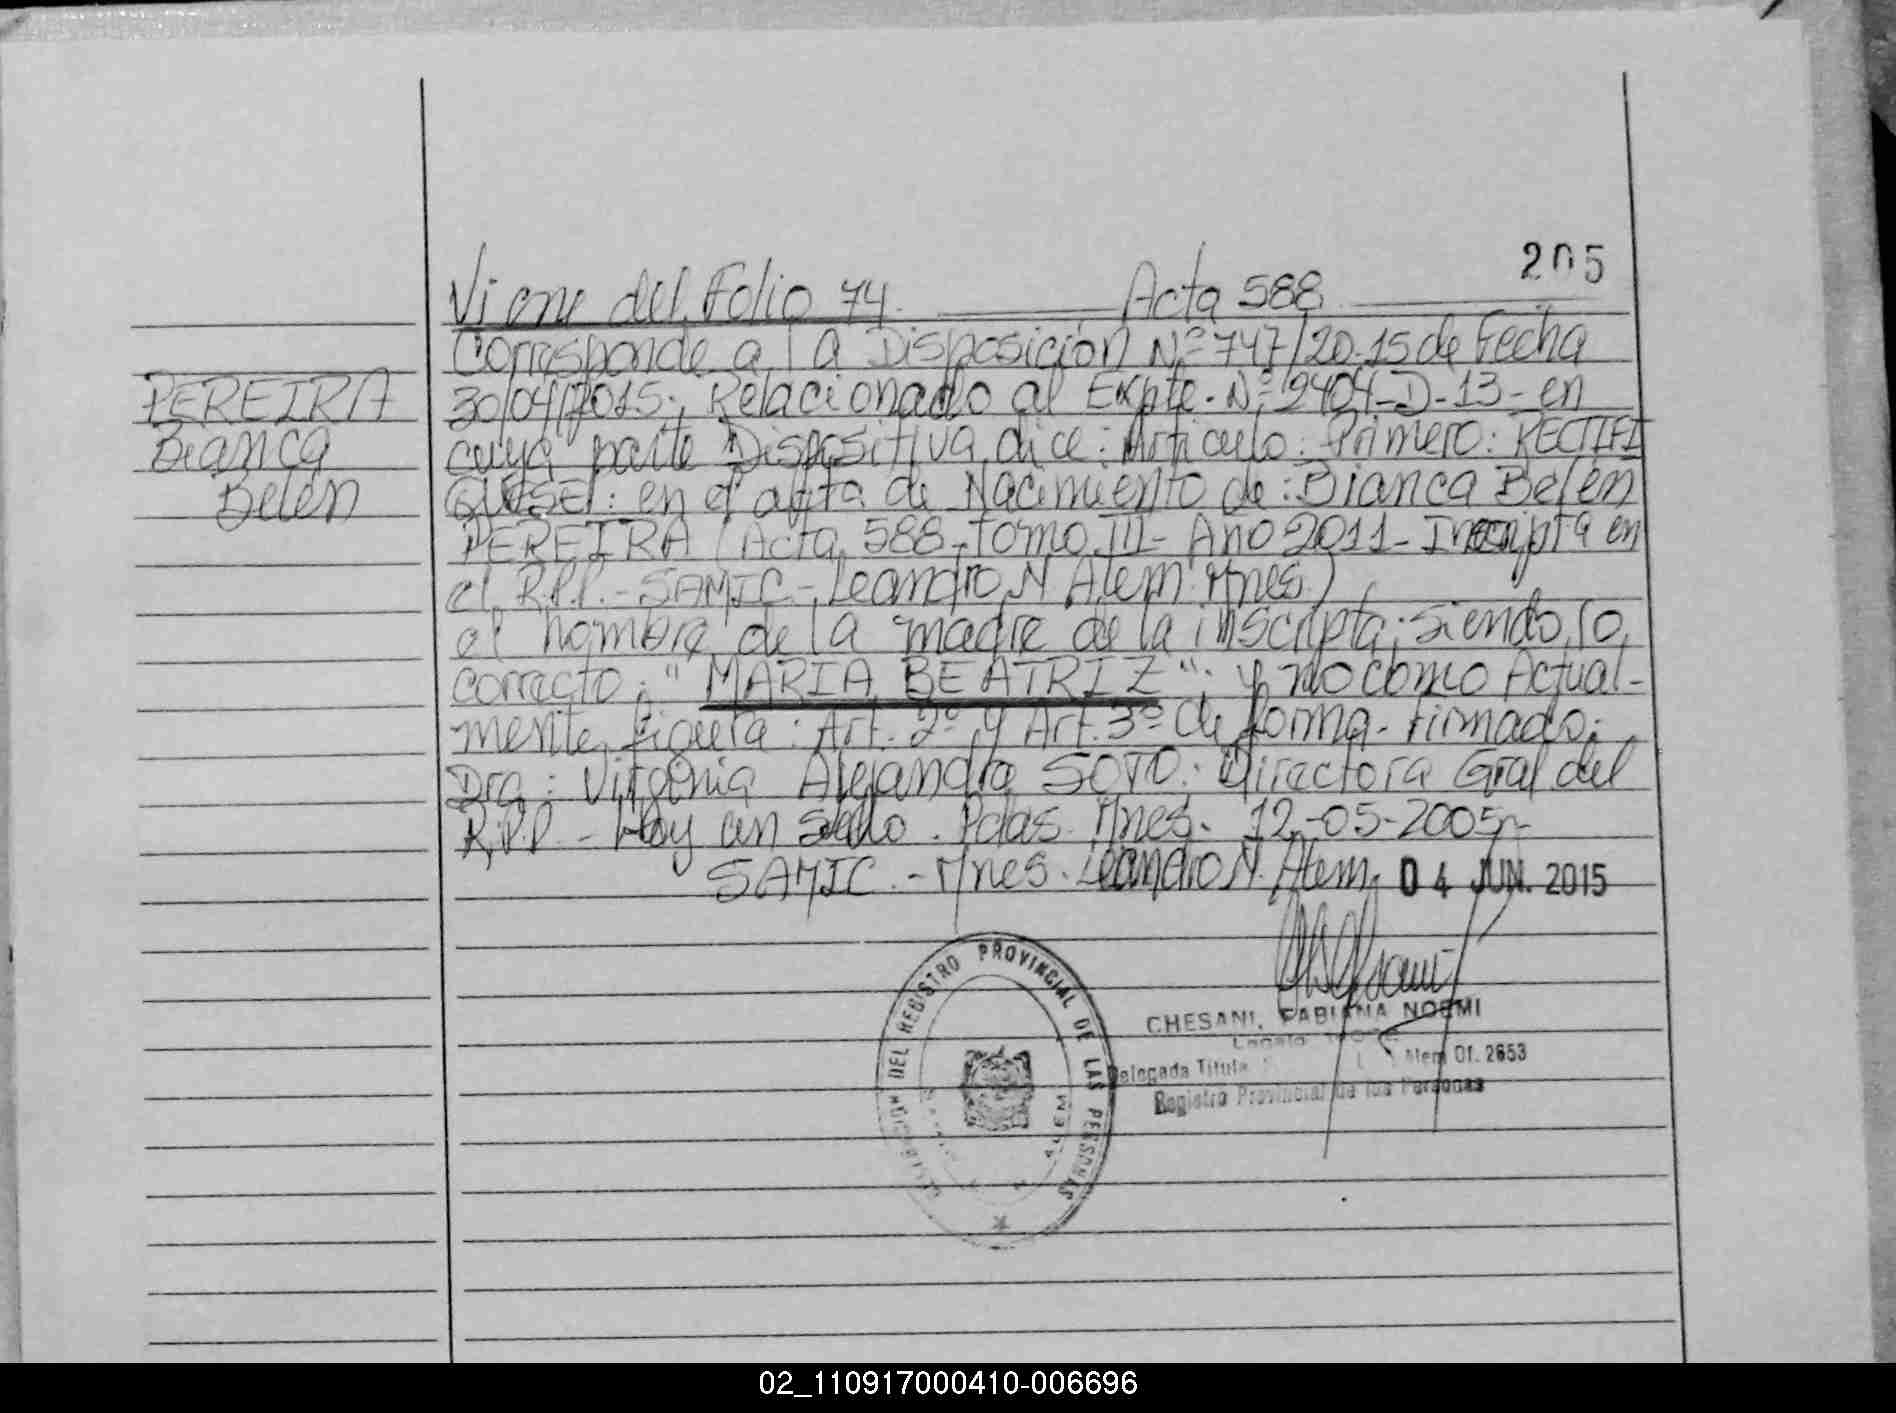 205
Viene del Folio 74. Acta 588
Corresponde a la Disposición Nº 747/20.15 de Fecha
PEREIRA
Bianca
Belén
30/04/2015; Relacionado al Expte. Nº 2404-D-13- en
cuya parte Dispositiva dice: Artículo: Primero: RECTIFI
QUESE: en el acta de Nacimiento de: Bianca Belén
PEREIRA (Acta 588-Tomo III- Año 2011- Inscripta en
el R.P.P.-SAMIC-Leandro N Alem Mnes)
el nombre de la madre de la inscripta; siendo lo
correcto: "MARIA BEATRIZ". y no como Actual-
mente figura: Art. 2º y Art. 3º de forma. Firmado:
Dra: Virginia Alejandra SOTO. Directora Gral del
R.P.P.- Hay un sello. Pdas. Mnes. 12-05-2005.-
SAMIC.- Mnes. Leandro N. Alem, 04 JUN. 2015
DEL REGISTRO PROVINCIAL DE LAS PERSONAS
ALEM
CHESANI, FABIANA NOEMI
Delegada Titular Alem Of. 2653
Registro Provincial de las Personas
02_110917000410-006696